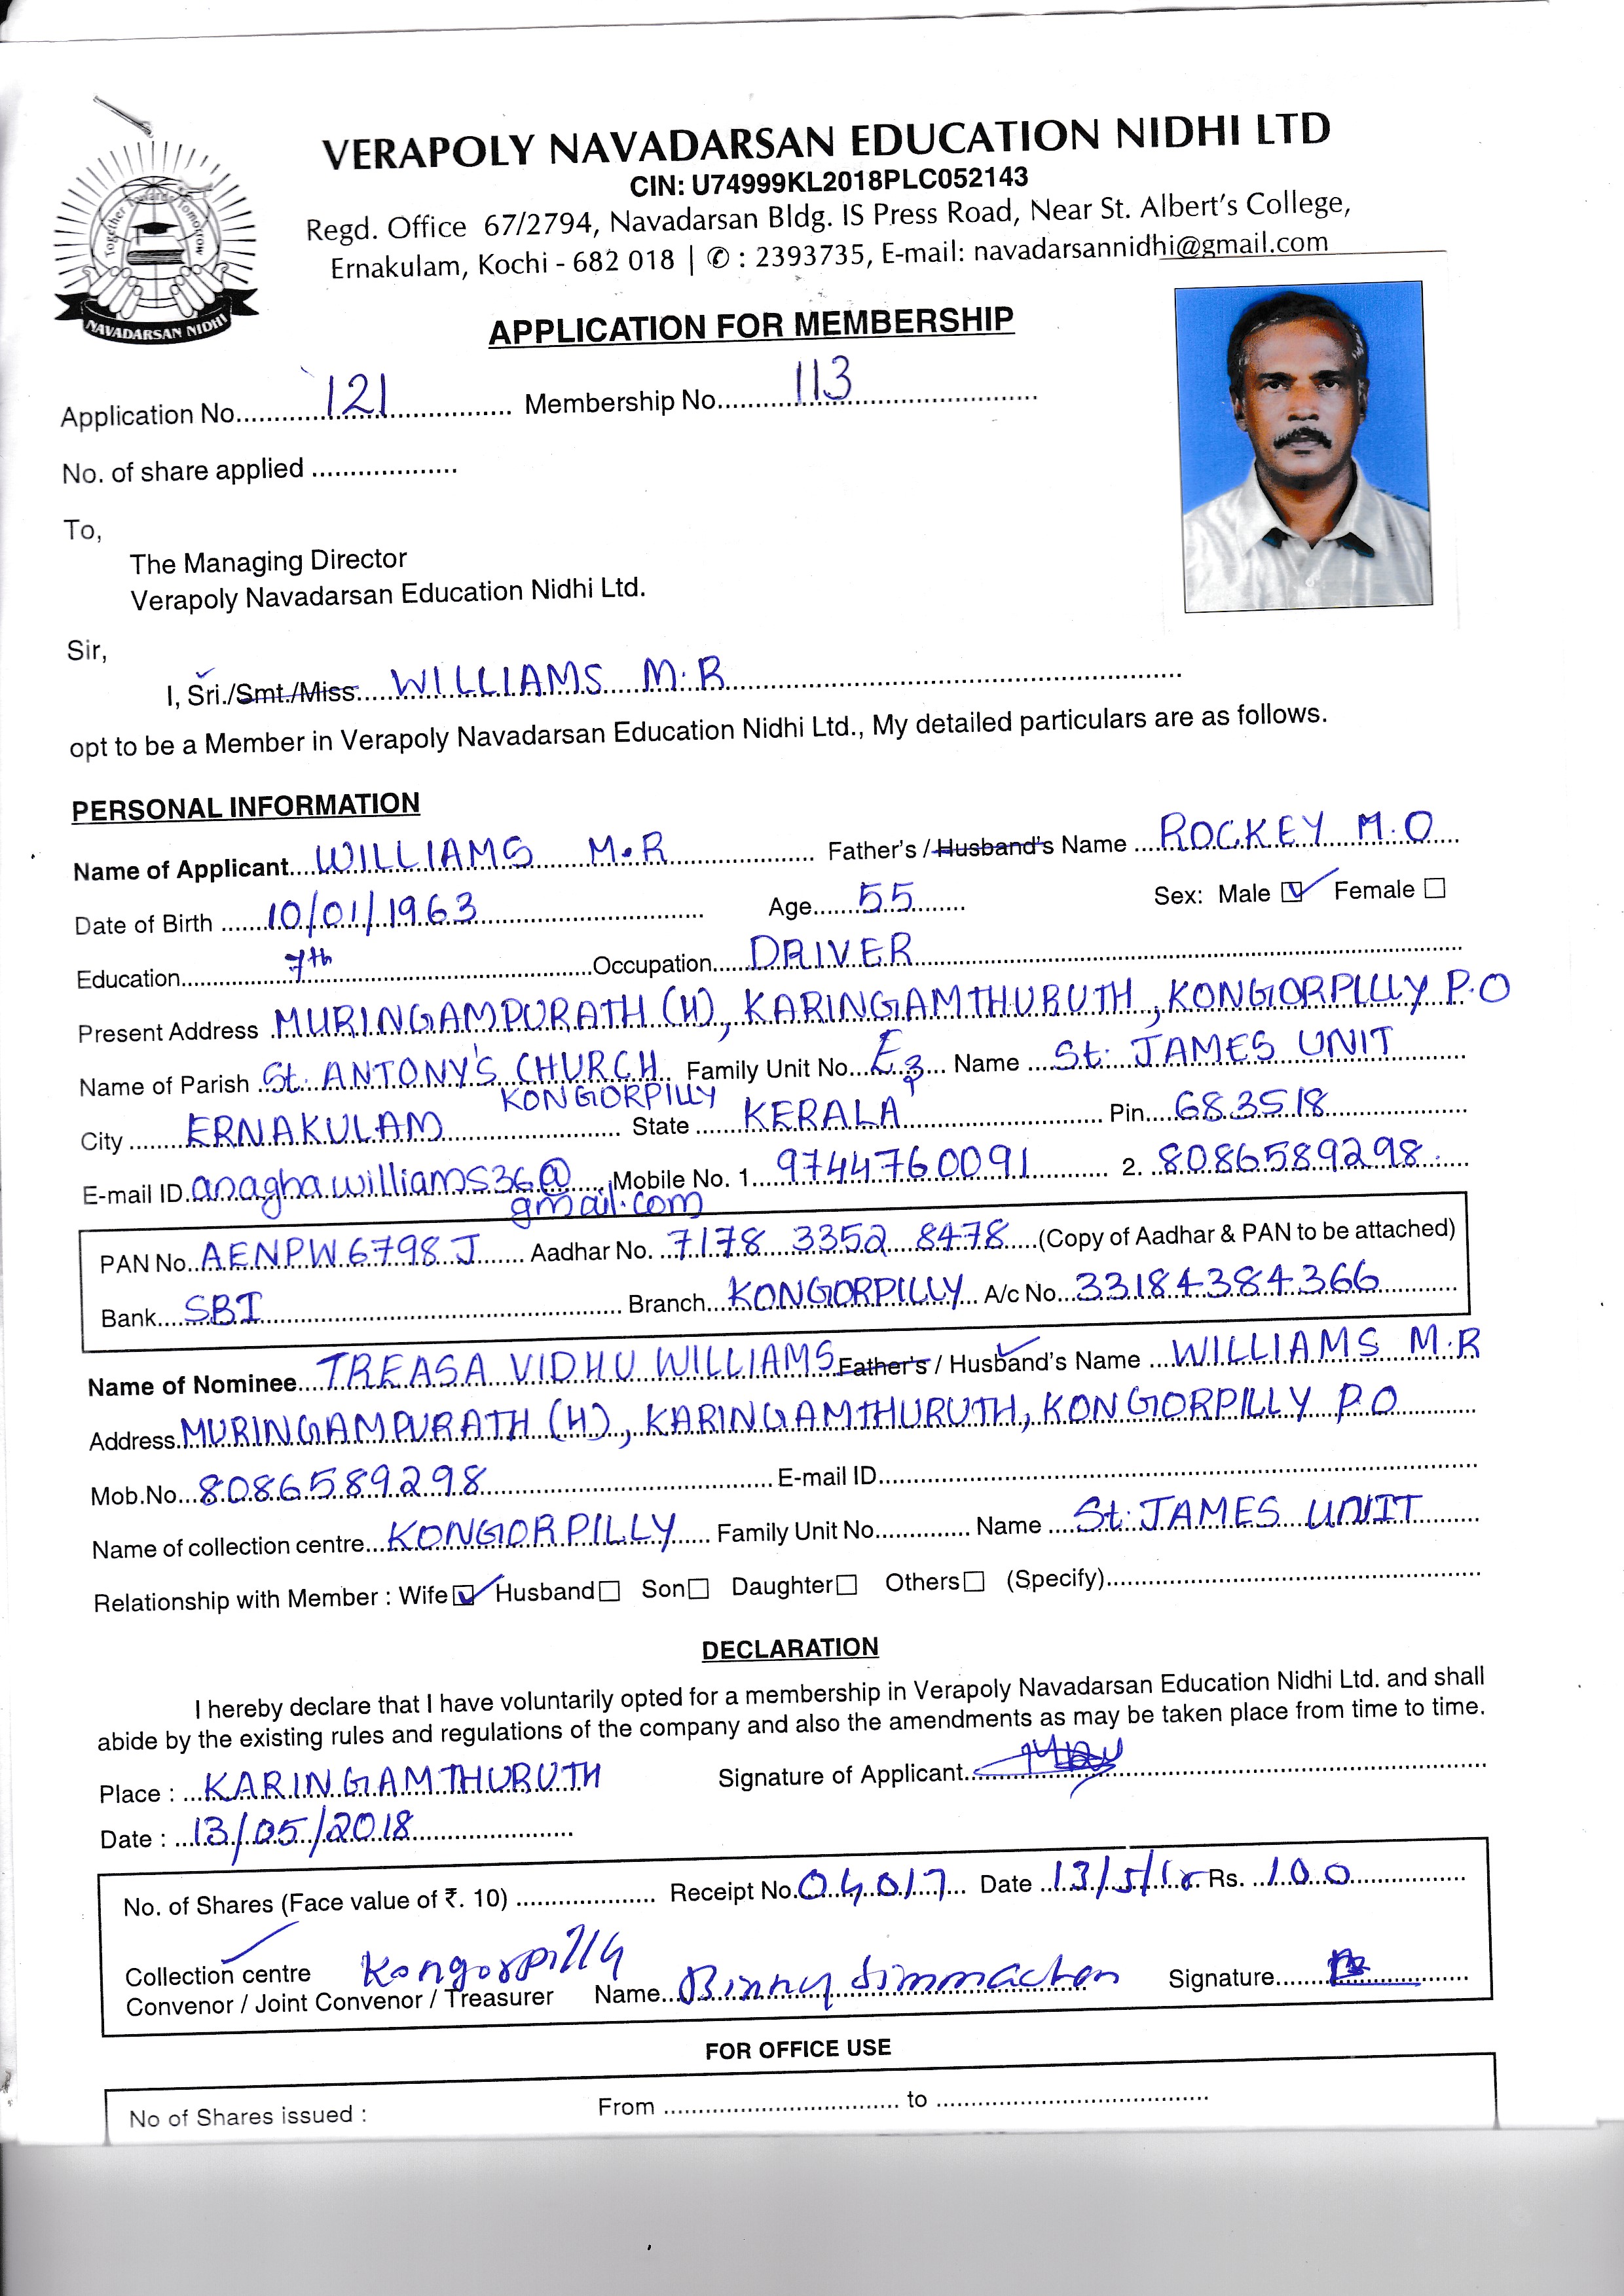 VERAPOLY NAVADARSAN EDUCATION NIDHI LTD
CIN: U74999KL2018PLC052143
Regd. Office 67/2794, Navadarsan Bldg. IS Press Road, Near St. Albert's College,
Ernakulam, Kochi - 682 018 | ✆ : 2393735, E-mail: navadarsannidhi@gmail.com
Together Towards Tomorrow
NAVADARSAN NIDHI
APPLICATION FOR MEMBERSHIP
Application No. 121 Membership No. 113
No. of share applied
To,
The Managing Director
Verapoly Navadarsan Education Nidhi Ltd.
Sir,
I, Sri./Smt./Miss. WILLIAMS M.R
opt to be a Member in Verapoly Navadarsan Education Nidhi Ltd., My detailed particulars are as follows.
PERSONAL INFORMATION
Name of Applicant WILLIAMS M.R Father's / Husband's Name ROCKEY M.O
Date of Birth 10/01/1963 Age 55 Sex: Male ☑ Female ☐
Education 7th Occupation DRIVER
Present Address MURINGAMPURATH (H), KARINGAMTHURUTH, KONGORPILLY P.O
Name of Parish St. ANTONY'S CHURCH Family Unit No. E3 Name St: JAMES UNIT
KONGORPILLY
City ERNAKULAM State KERALA Pin 683518
E-mail ID anaghawilliams36@ Mobile No. 1 9744760091 2. 8086589298
gmail.com
PAN No. AENPW6798J Aadhar No. 7178 3352 8478 (Copy of Aadhar & PAN to be attached)
Bank SBI Branch KONGORPILLY A/c No. 33184384366
Name of Nominee TREASA VIDHU WILLIAMS Father's / Husband's Name WILLIAMS M.R
Address MURINGAMPURATH (H), KARINGAMTHURUTH, KONGORPILLY P.O
Mob.No. 8086589298 E-mail ID
Name of collection centre KONGORPILLY Family Unit No. Name St: JAMES UNIT
Relationship with Member : Wife ☑ Husband ☐ Son ☐ Daughter ☐ Others ☐ (Specify)
DECLARATION
I hereby declare that I have voluntarily opted for a membership in Verapoly Navadarsan Education Nidhi Ltd. and shall
abide by the existing rules and regulations of the company and also the amendments as may be taken place from time to time.
Place : KARINGAMTHURUTH Signature of Applicant
Date : 13/05/2018
No. of Shares (Face value of ₹. 10) Receipt No. 04017 Date 13/5/18 Rs. 100
Collection centre Kongorpilly
Convenor / Joint Convenor / Treasurer Name Binny Simmachan Signature
FOR OFFICE USE
No of Shares issued : From to